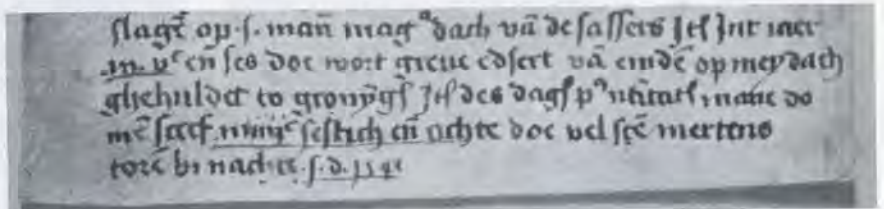 slagē op .s. mag dach vā de sassers Itē Int iaer
.m. vᶜ eñ ses doe wort greue edsert vā emdē op mey dach
ghehuldet to gronȳgē Itē des marie do
mē iiijᶜ sestich eñ achte doe vel scē mertens
torē bi nachte .s. d.